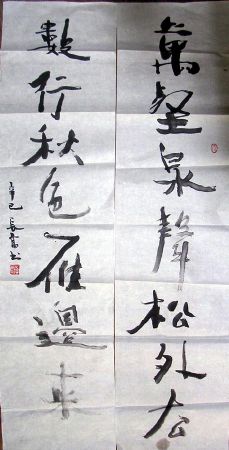 萬壑泉聲松外去
數行秋色雁邊来
辛巳